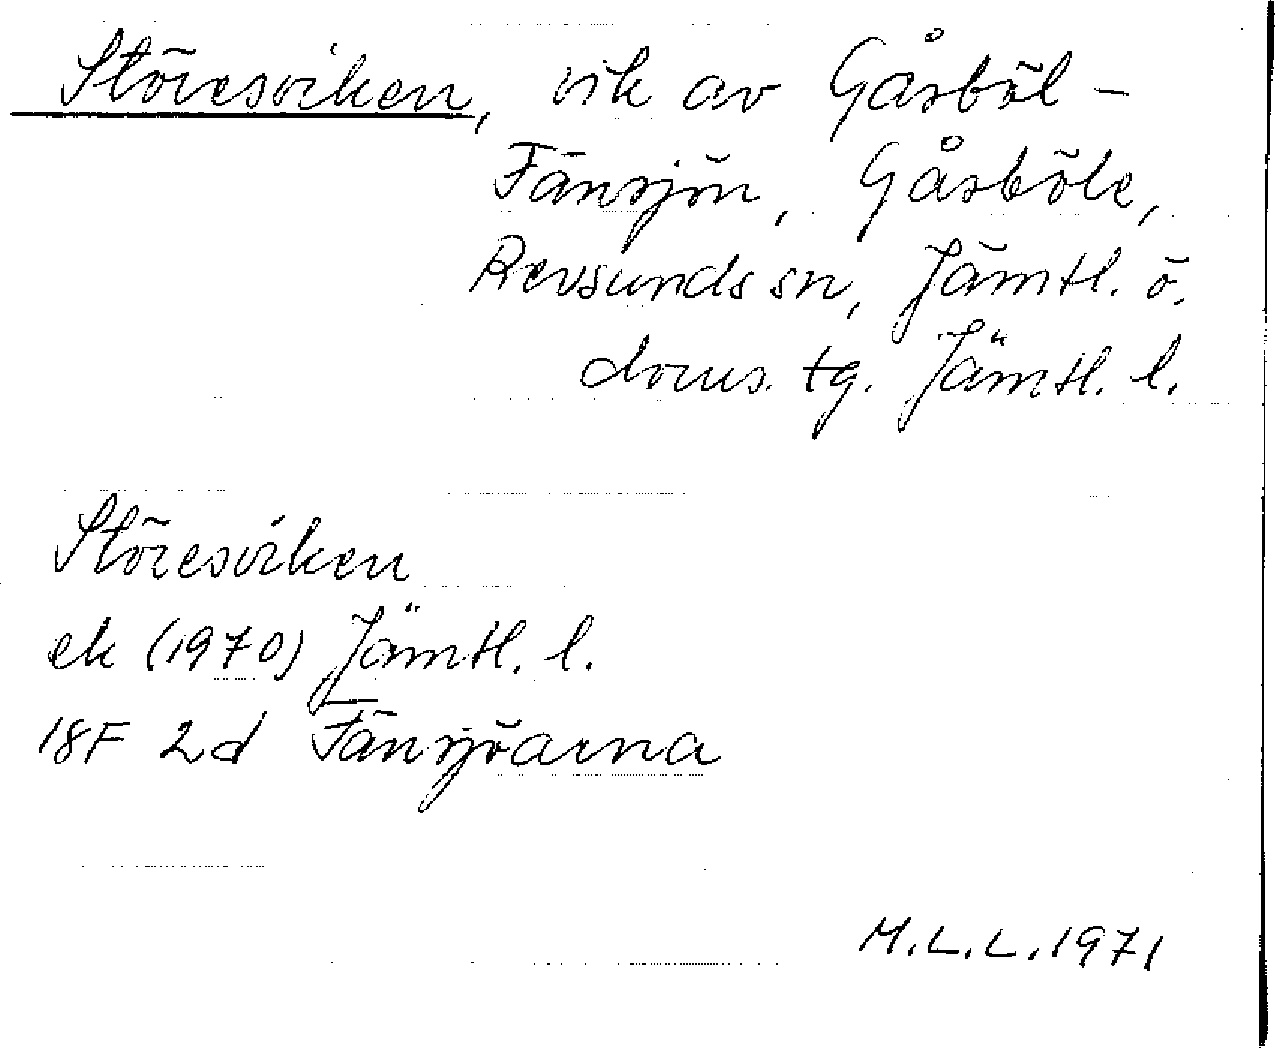 Störesviken, vik av Gåsböl-
Fänsjön, Gåsböle,
Revsunds sn, Jämtl. ö.
doms. tg. Jämtl. l.
Störesviken
ek (1970) Jämtl. l.
18F 2d Fänsjöarna
M.L.L. 1971